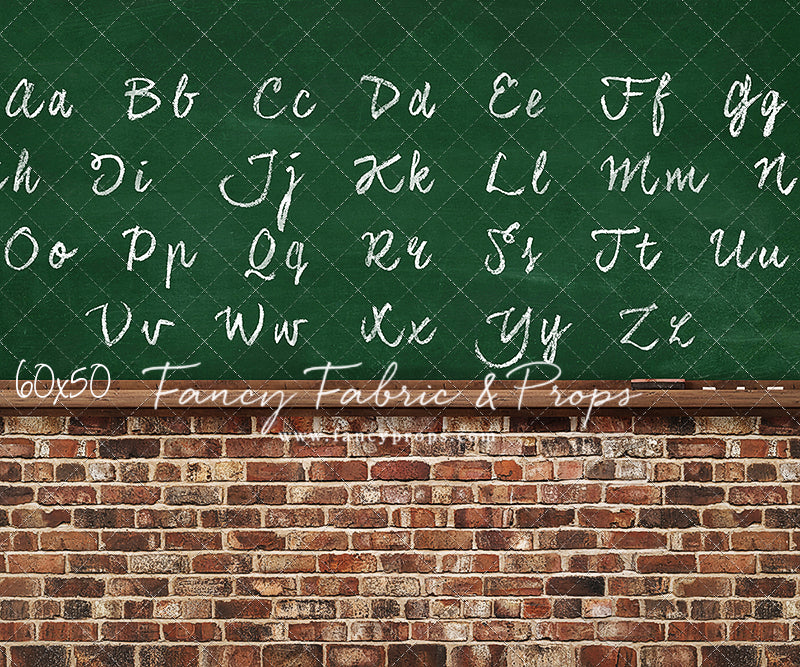 Aa Bb Cc Dd Ee Ff Gg
h Ii Jj Kk Ll Mm N
Oo Pp Qq Rr Ss Tt Uu
Vv Ww Xx Yy Zz
60x50 Fancy Fabric & Props
www.fancyprops.com